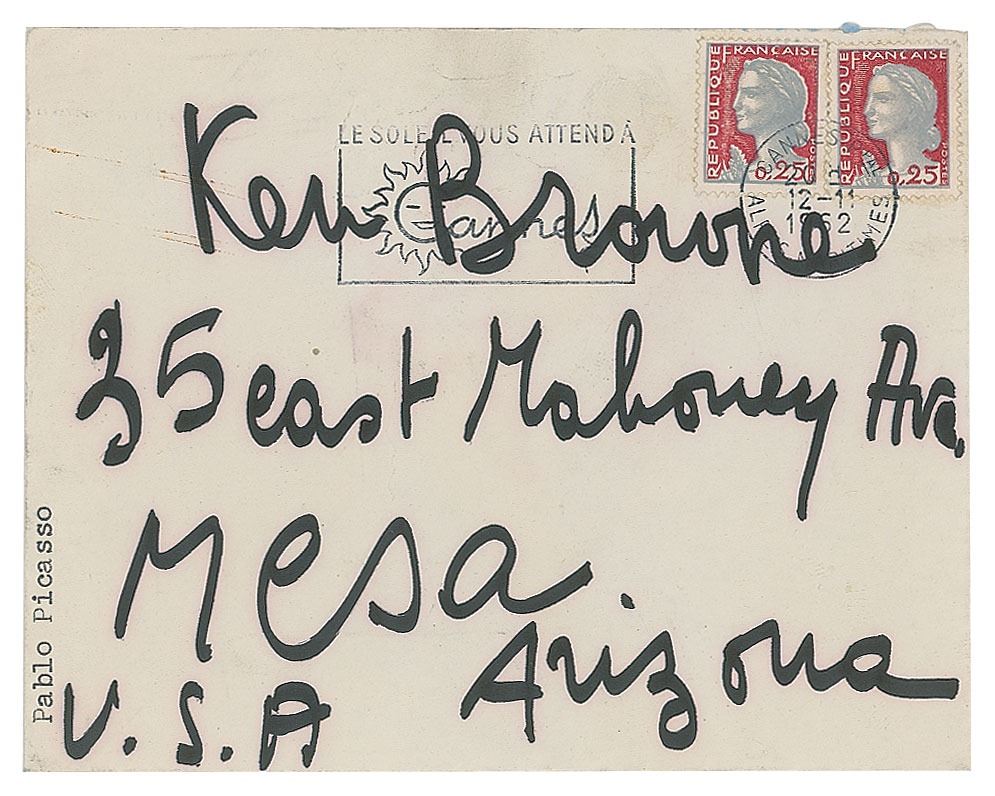 RÉPUBLIQUE FRANÇAISE
0,25
POSTES
RÉPUBLIQUE FRANÇAISE
0,25
POSTES
LE SOLEIL VOUS ATTEND À
Cannes
CANNES
12-11
1962
ALPES MARITIMES
Ken Browne
35 east Mahoney Ave.
Mesa.
Arizona
U.S.A
Pablo Picasso